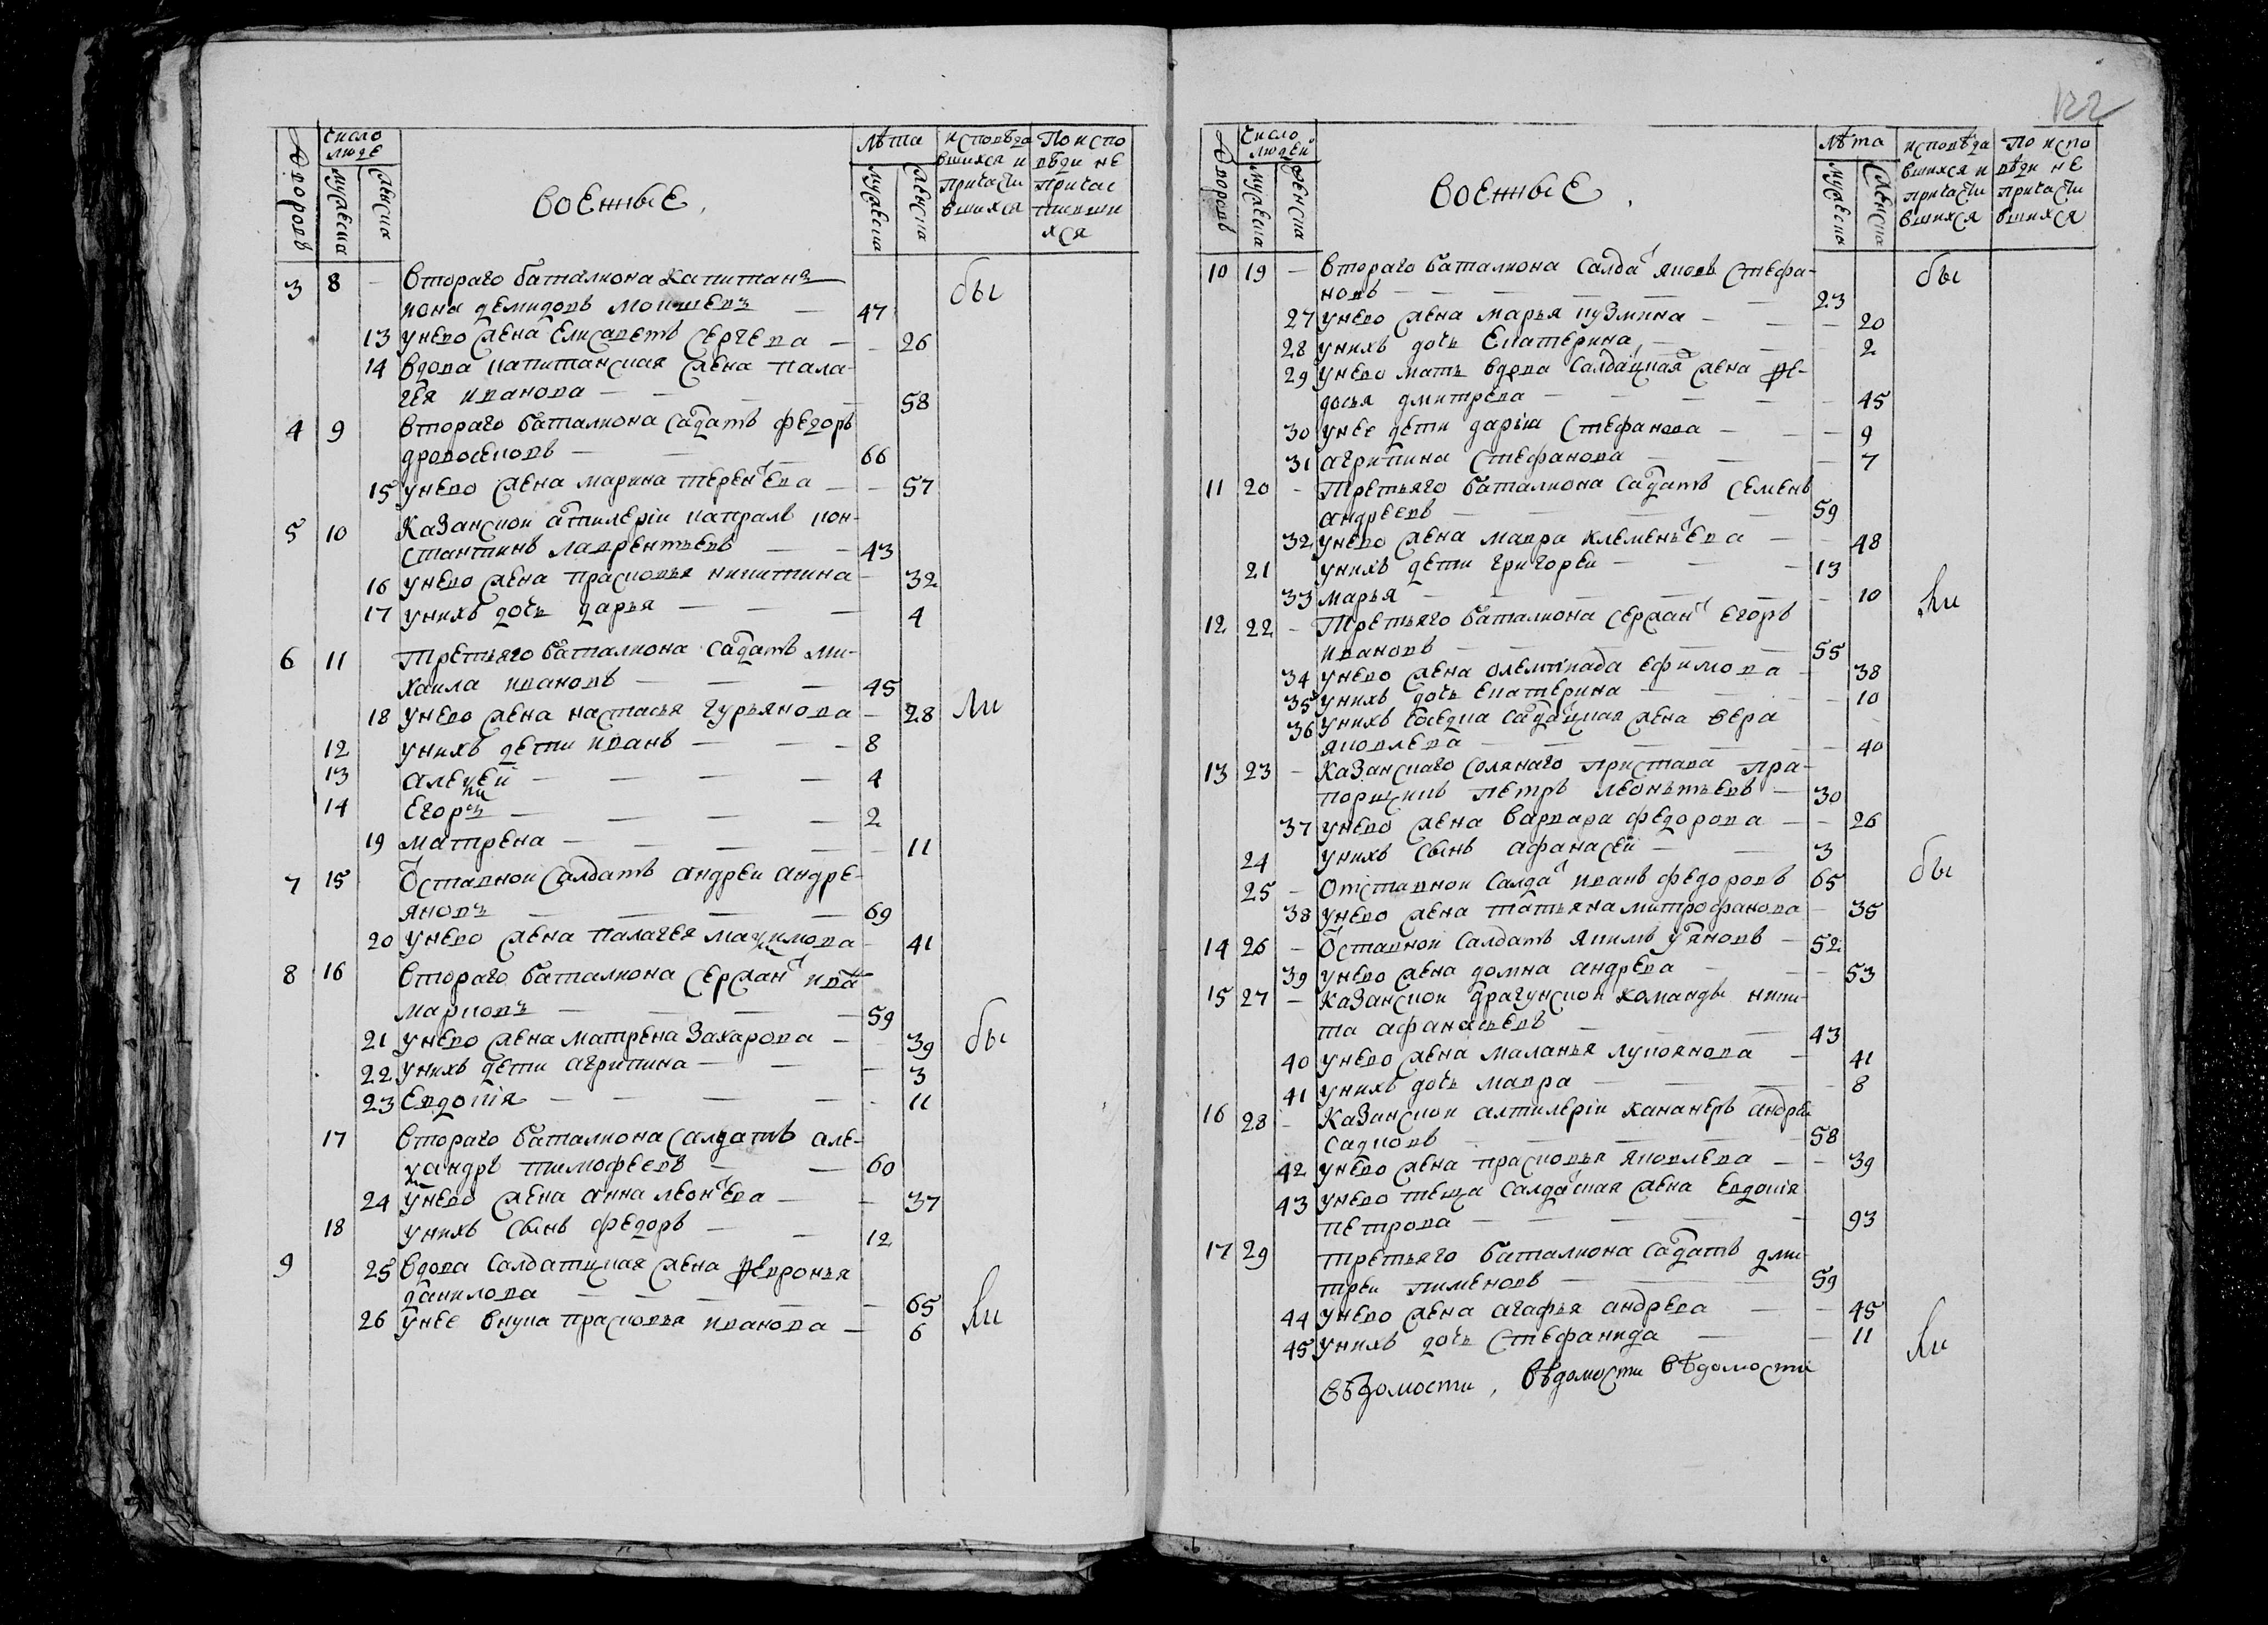 122
Дворовъ
число люде
мужеска
женска
военные
лѣта
мужеска
женска
исповѣда
вшихся и
причасти
вшихся
По испо
вѣди не
причас
тивши
хся
3 8 — втораго баталиона капитанъ
кона демидовъ моишевъ — 47 бы
13 унево жена Елисаветъ Сергѣева — 26
14 вдова капитанская жена пала-
гея иванова — 58
4 9 втораго баталиона садатъ федоръ
дровосековъ — 66
15 унево жена марина терентева — 57
5 10 Казанской атилеріи капралъ кон-
стантинъ лаврентьевъ — 43
16 унево жена прасковья никитина — 32
17 унихъ дочь дарья — 4
6 11 третьяго баталиона садатъ ми-
хаила ивановъ — 45
18 унево жена настасья гурьянова — 28 ли
12 унихъ дети иванъ — 8
13 алеѯей — 4
14 Егоръ — 2
19 матрена — 11
7 15 Оставной Салдатъ андреи андре-
яновъ — 69
20 унево жена палагея маѯимова — 41
8 16 втораго баталиона сержант ива
марковъ — 59
21 унево жена матрена захарова — 39 бы
22 унихъ дети агрипина — 3
23 Евдокия — 11
17 втораго баталиона салдатъ але-
ѯандръ тимофеевъ — 60
24 унево жена анна леонтева — 37
18 унихъ сынъ федоръ — 12
9 25 вдова Салдатцкая жена февронья
данилова — 65
26 унее внука прасковья иванова — 6 ли
Дворовъ
число людеи
мужеска
женска
военные
лѣта
мужеска
женска
исповѣда
вшихся и
причасти
вшихся
По испо
вѣди не
причасти
вшихся
10 19 — втораго баталиона Салдат яковъ стефа-
новъ — 23 бы
27 унево жена марья кузмина — 20
28 унихъ дочь Екатерина — 2
29 унево мать вдова Салдацкая жена фе-
досья дмитрева — 45
30 унее дети дарья Стефанова — 9
31 агрипина Стефанова — 7
11 20 — Третьяго баталиона садатъ семенъ
андреевъ — 59
32 унево жена мавра клементева — 48
21 унихъ дети григореи — 13
33 марья — 10 ли
12 22 — Третьяго баталиона сержант егоръ
ивановъ — 55
34 унево жена олемпиада ефимова — 38
35 унихъ дочь екатерина — 10
36 унихъ соседка садацкая жена вера
яковлева — 40
13 23 — Казанскаго солянаго пристава пра-
порщикъ петръ леонтьевъ — 30
37 унево жена варвара федорова — 26
24 унихъ сынъ афанасей — 3
25 — Отставной салдат иванъ федоровъ 65 бы
38 унево жена татьяна митрофанова — 35
14 26 — Оставной Салдатъ якимъ уяновъ — 52
39 унево жена домна андрева — 53
15 27 — Казанской драгунской команды ники-
та афанасьевъ — 43
40 унево жена маланья лукоянова — 41
41 унихъ дочь мавра — 8
16 28 — Казанской алтилеріи кананеръ андреи
садковъ — 58
42 унево жена прасковья яковлева — 39
43 унево теща салдатская жена евдокия
петрова — 93
17 29 третьяго баталиона садатъ дми-
треи пименовъ — 59
44 унево жена агафья андрева — 45
45 унихъ дочь Стефанида — 11 ли
вѣдомости, вѣдомости вѣдомости